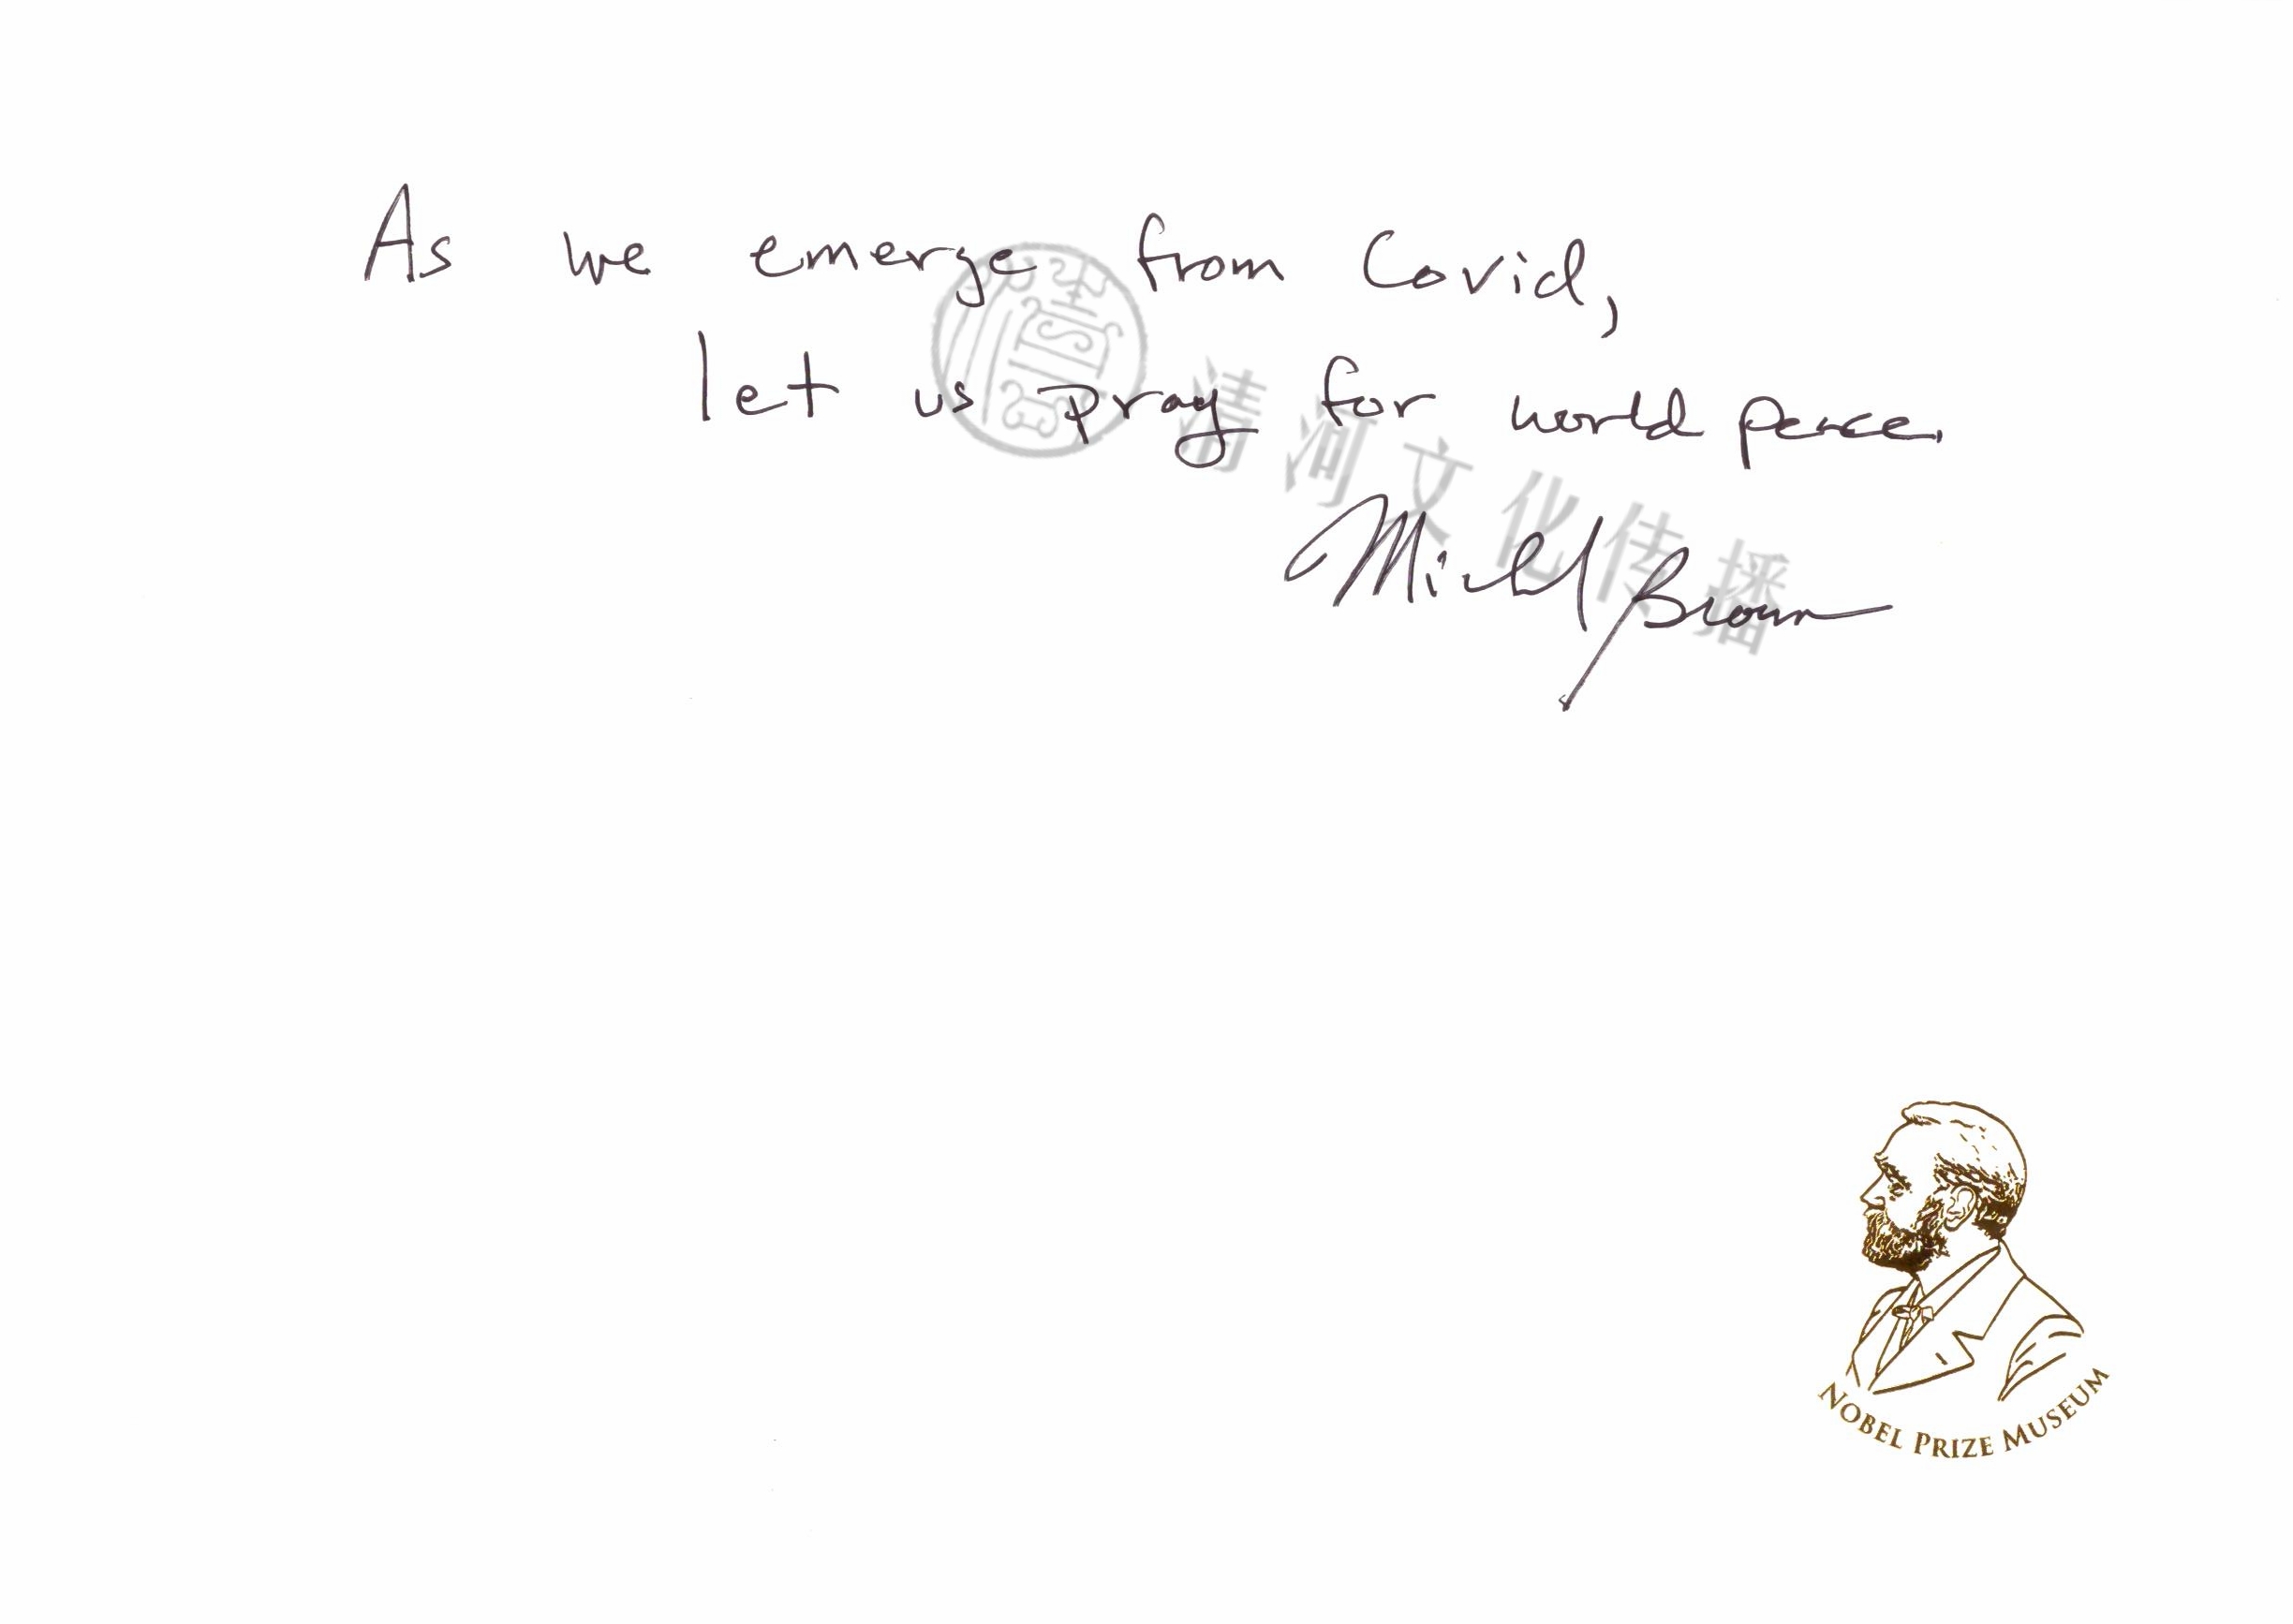 As we emerge from Covid,
let us pray for world peace.
Michael Brown
清河文化传播
NOBEL PRIZE MUSEUM